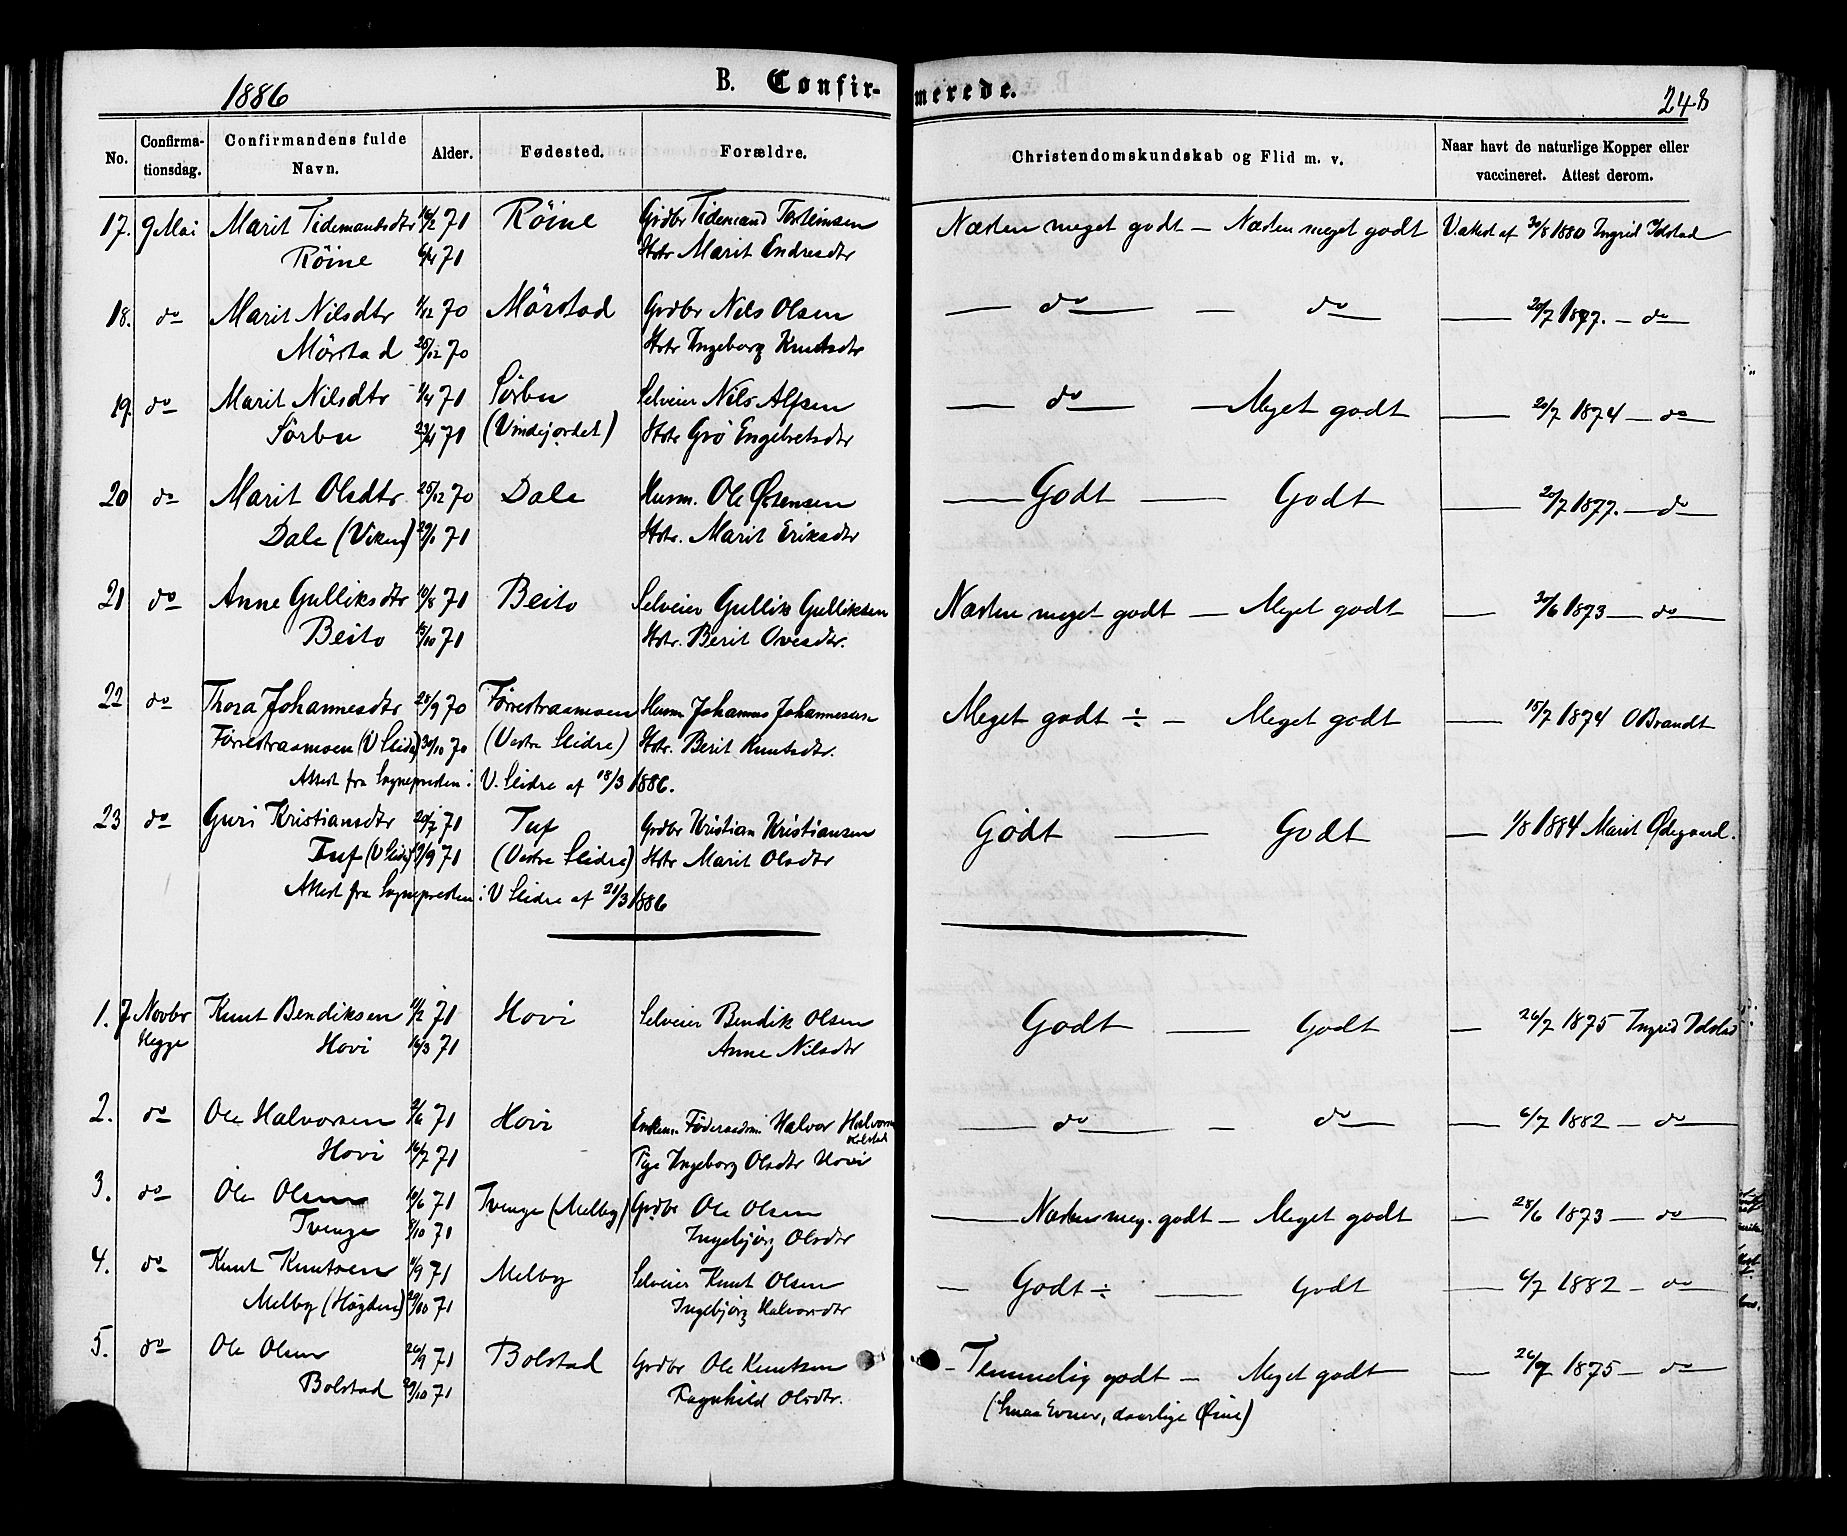 1886 B. Confirmerede. 248
No. Confirmationsdag. Confirmandens fulde Navn. Alder. Fødested. Forældre. Christendomskundskab og Flid m. v. Naar havt de naturlige Kopper eller vaccineret. Attest derom.
17. 9 Mai Marit Tidemandsdtr 16/2 71 Röine Grdbr Tidemand Torsteinsen Næsten meget godt — Næsten meget godt Vaktest af 30/8 1880 Ingrid Idstad
Röine 6/4 71 Hstr Marit Endresdtr
18. do Marit Nilsdtr 1/12 70 Mörstad Grdbr Nils Olsen — do — — do — — 20/7 1877. — do
Mörstad 25/12 70 Hstr Ingeborg Knutsdtr
19. do Marit Nilsdtr 1/4 71 Sörbu Selveier Nils Alfsen — do — — Meget godt — 20/7 1874 — do
Sörbu 23/4 71 (Vindejordet) Hstr Grö Engebretsdtr
20 do Marit Olsdtr 25/12 70 Dale Husm. Ole Østensen — Godt — Godt — 20/7 1877. — do
Dale (Viken) 29/1 71 Hstr. Marit Eriksdtr
21 do Anne Gulliksdtr 10/8 71 Beito Selveier Gullik Gulliksen Næsten meget godt — Meget godt — 30/6 1873 — do
Beito 15/10 71 Hstr. Berit Ovesdtr.
22 do Thora Johannesdtr 28/9 70 Förrestraamoen Husm Johannes Johannessen Meget godt ÷ — Meget godt — 15/7 1874 O Brandt
Förrestraamoen (V Slidre) 30/10 70 (Vestre Slidre) Hstr. Berit Knutsdtr.
Attest fra Sognepresten i V. Slidre af 18/3 1886.
23 do Guri Kristiansdtr 20/7 71 Tuf Grdbr Kristian Kristiansen Godt — Godt — 1/8 1884 Marit Ødegaard.
Tuf (V Slidre) 3/9 71 (Vestre Slidre) Hstr Marit Olsdtr
Attest fra Sognepresten i V Slidre af 21/3 1886
1. 7 Novbr Knut Bendiksen 11/2 71 Hovi Selveier Bendik Olsen Godt — Godt — 26/7 1875 Ingrid Idstad
Hegge Hovi 16/3 71 Anne Nilsdtr
2. do Ole Halvorsen 2/6 71 Hovi Enkem. Föderaadsm. Halvor Halvorsen — do — — do — — 6/7 1882 — do
Kolstad
Hovi 16/7 71 Pige Ingeborg Olsdtr Hovi
3. do Ole Olsen 10/6 71 Tvenge (Melby) Grdbr Ole Olsen — Næsten meg. godt — Meget godt — 28/6 1873 — do
Tvenge 8/10 71 Ingebjörg Olsdtr
4. do Knut Knutsen 11/9 71 Melby Selveier Knut Olsen — Godt ÷ — Godt — 6/7 1882 — do
Melby (Högden) 29/10 71 Ingebjörg Halvorsdtr
5. do Ole Olsen 26/9 71 Bolstad Grdbr Ole Knutsen — Temmelig godt — Meget godt — 26/7 1875 — do
Bolstad 29/10 71 Ragnhild Olsdtr. (Smaa Evner, daarlige Øine)